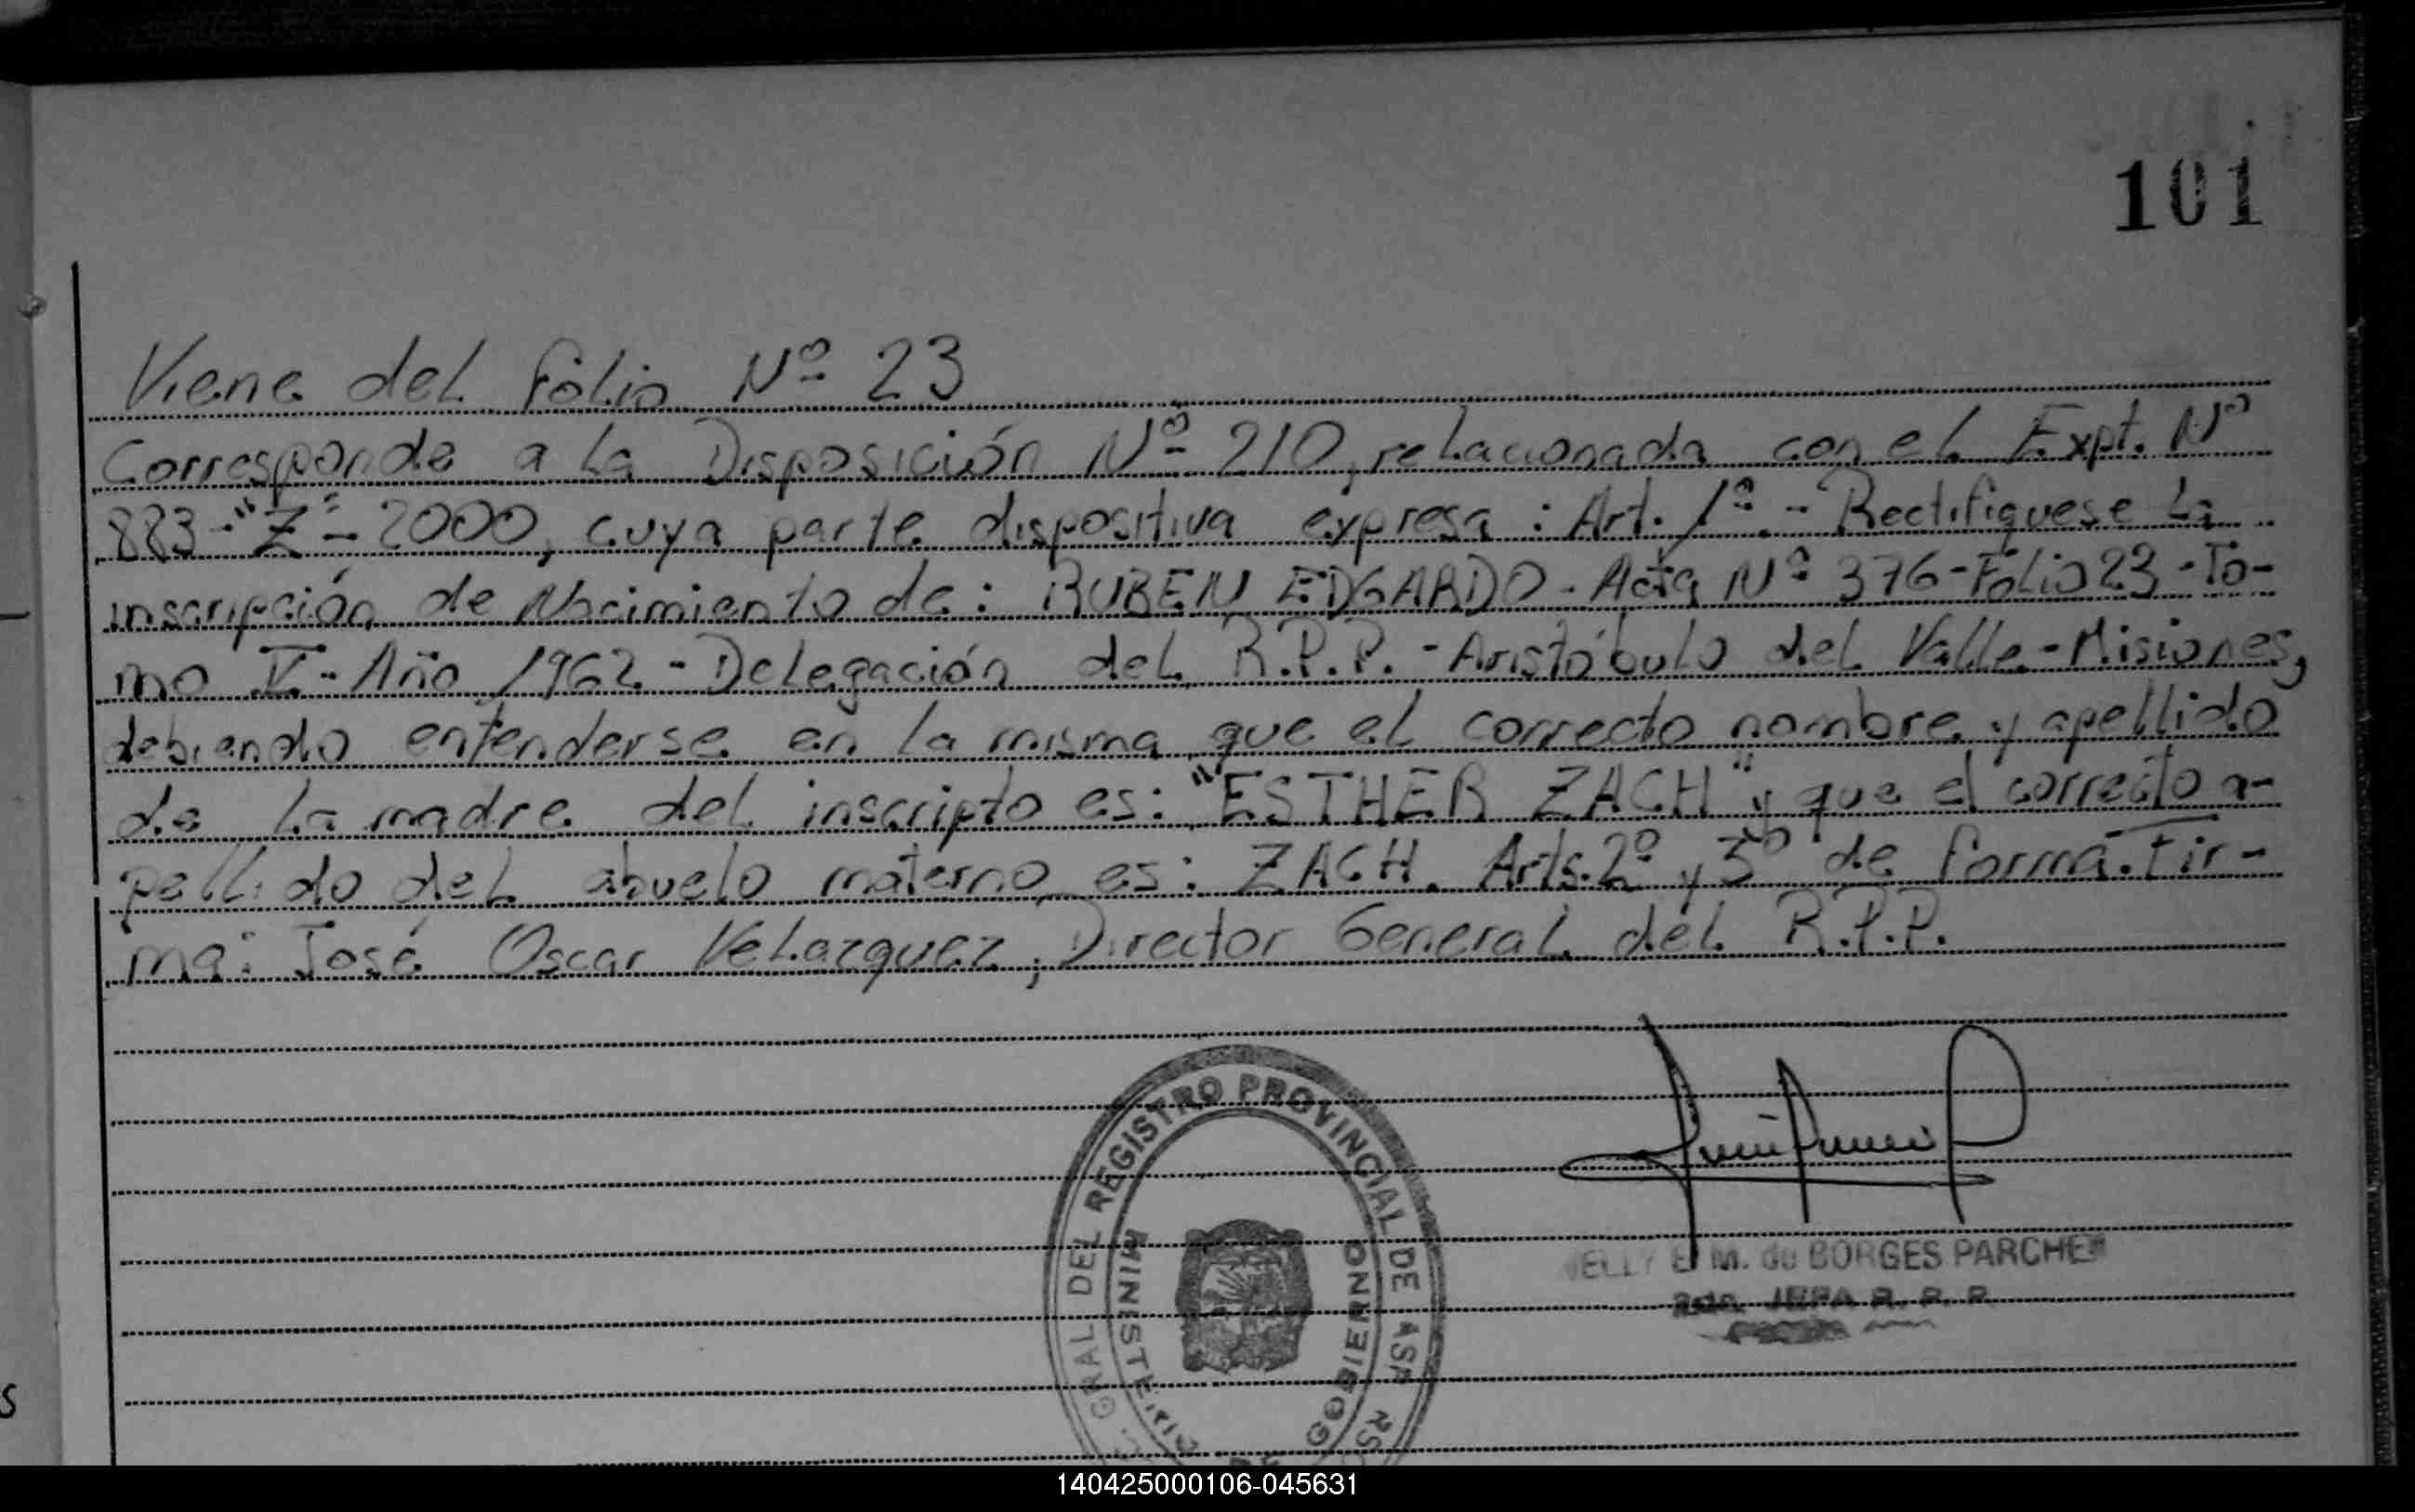 101
Viene del folio Nº 23
Corresponde a la Disposición Nº 210, relacionada con el Expt. Nº
883-"Z"-2000, cuya parte dispositiva expresa: Art. 1º - Rectifíquese la
inscripción de Nacimiento de: RUBEN EDGARDO - Acta Nº 376 - Folio 23 - To-
mo V - Año 1962 - Delegación del R.P.P. - Aristóbulo del Valle - Misiones,
debiendo entenderse en la misma que el correcto nombre y apellido
de la madre del inscripto es: "ESTHER ZACH" y que el correcto a-
pellido del abuelo materno es: ZACH. Arts. 2º y 3º de forma. Fir-
ma: José Oscar Velazquez, Director General del R.P.P.
GRAL DEL REGISTRO PROVINCIAL DE
MINISTERIO DE GOBIERNO
E. M. de BORGES PARCHEM
2da. JEFA R. P. P.
140425000106-045631